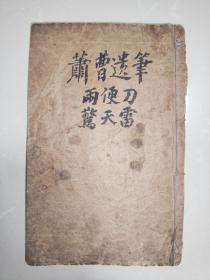 蕭曹遺筆
兩便刀
驚天雷